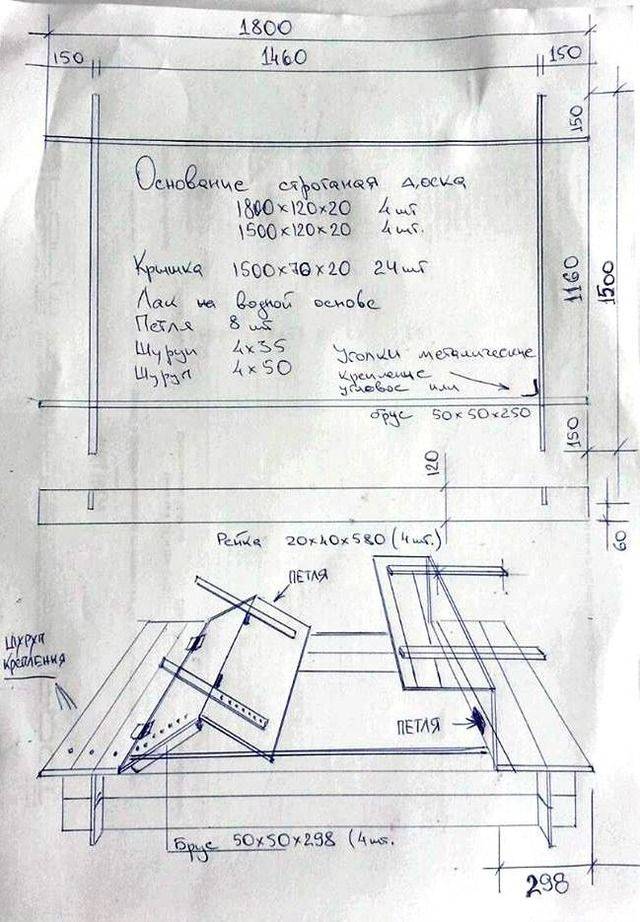 1800
150 1460 150
150
Основание строганая доска
1800×120×20 4 шт
1500×120×20 4 шт.
Крышка 1500×70×20 24 шт
1160
1500
Лак на водной основе
Петля 8 шт
Шуруп 4×35
Шуруп 4×50
Уголки металические
крепление
угловое или
брус 50×50×250
150
120
60
Рейка 20×40×580 (4 шт.)
ПЕТЛЯ
ШУРУП
КРЕПЛЕНИЯ
ПЕТЛЯ
Брус 50×50×298 (4 шт.
298